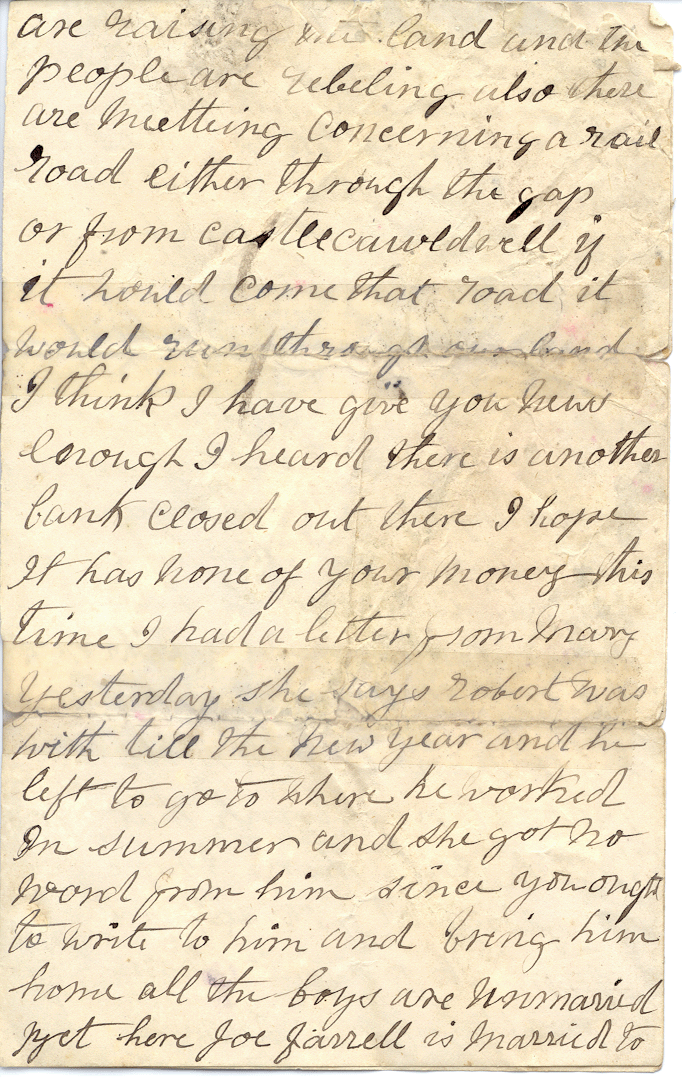 are raising the land and the
people are rebeling also there
are meetteing concerning a rail
road either through the gap
or from castlecauldwell if
it would come that road it
would run through our land
I think I have give you news
enough I heard there is another
bank closed out there I hope
it has none of your money this
time I had a letter from Mary
yesterday she says Robert was
with till the new year and he
left to go to where he worked
in summer and she got no
word from him since you ought
to write to him and bring him
home all the boys are unmaried
yet here Joe Farrell is married to